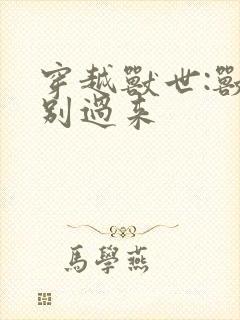 穿越獸世:獸
別過來
馬學燕